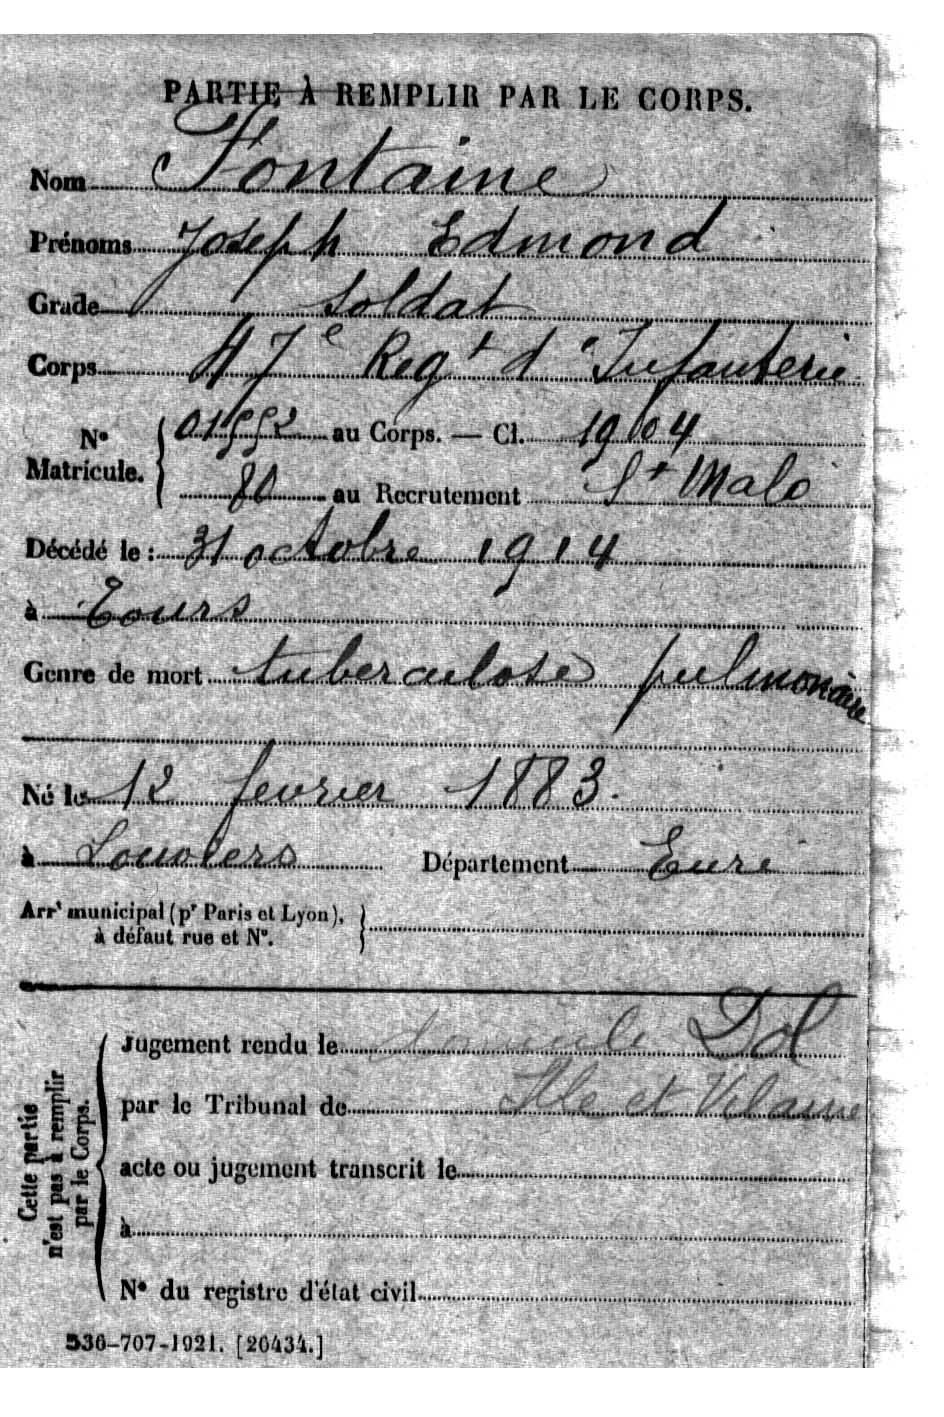 PARTIE À REMPLIR PAR LE CORPS.
Nom Fontaine
Prénoms Joseph Edmond
Grade soldat
Corps 47e Regt d'Infanterie
No Matricule. 01552 au Corps. — Cl. 1904
80 au Recrutement St Malo
Décédé le : 31 octobre 1914
à Tours
Genre de mort tuberculose pulmonaire
Né le 12 fevrier 1883.
à Louviers Département Eure
Arrt municipal (pr Paris et Lyon),
à défaut rue et No.
Cette partie
n'est pas à remplir
par le Corps.
Jugement rendu le domicile Dol
par le Tribunal de Ille et Vilaine
acte ou jugement transcrit le
à
No du registre d'état civil
536-707-1921. [26434.]